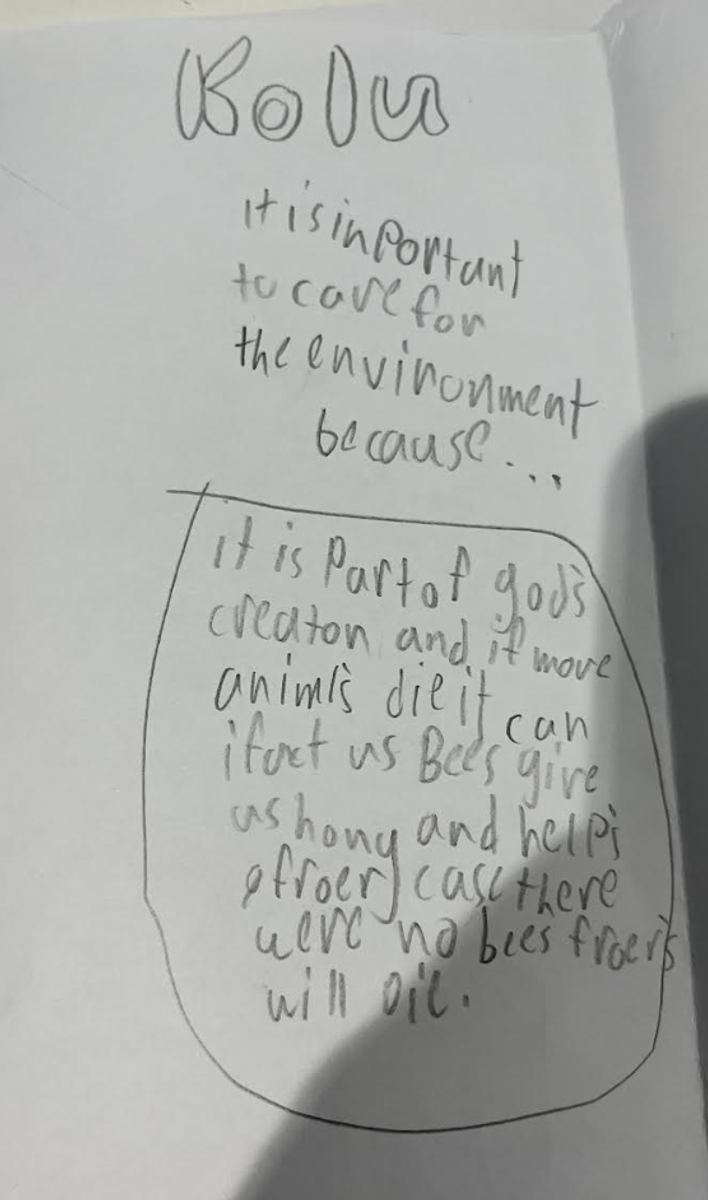 Kolu
it is inportant
to care for
the environment
because...
it is Part of god's
creaton and if more
animls die it can
ifact us Bees give
us hony and help's
froer case there
were no bees froer's
will die.